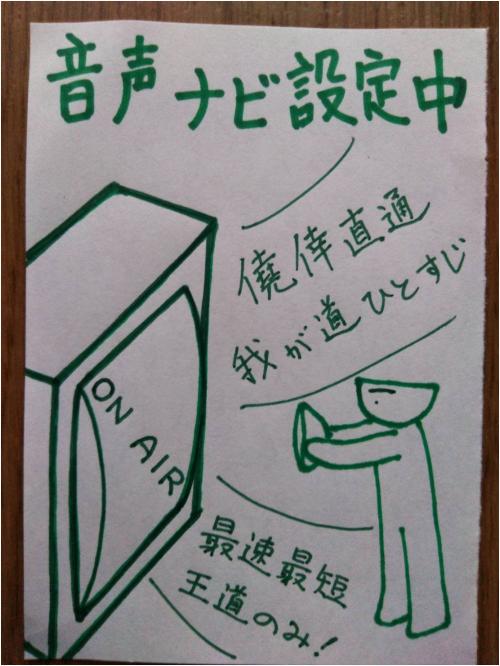 音声ナビ設定中
僥倖直通
我が道ひとすじ
ON AIR
最速最短
王道のみ!